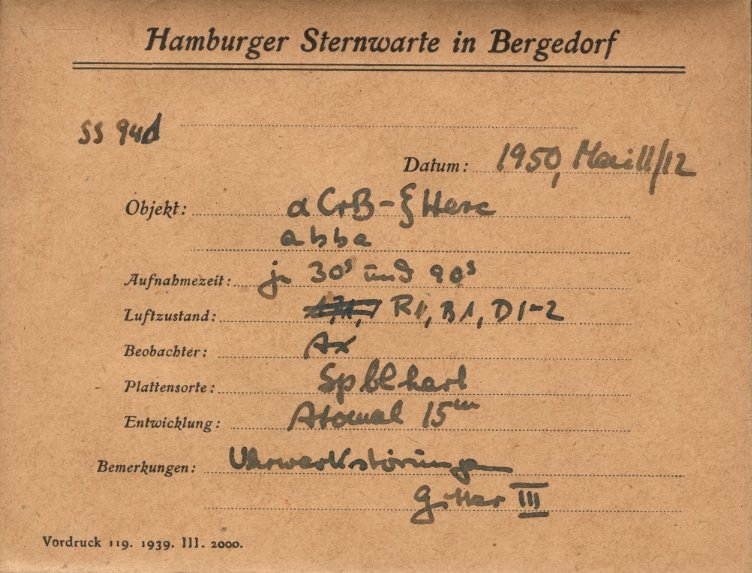 Hamburger Sternwarte in Bergedorf
SS 94d
Datum: 1950, Mai 11/12
Objekt: α CrB - ξ Herc
abba
Aufnahmezeit: je 30ˢ und 90ˢ
Luftzustand: R1, B1, D1-2
Beobachter: Ax
Plattensorte: Sp bl hart
Entwicklung: Atomal 15ᵐ
Bemerkungen: Uhrwerkstörungen
Gitter III
Vordruck 119. 1939. III. 2000.